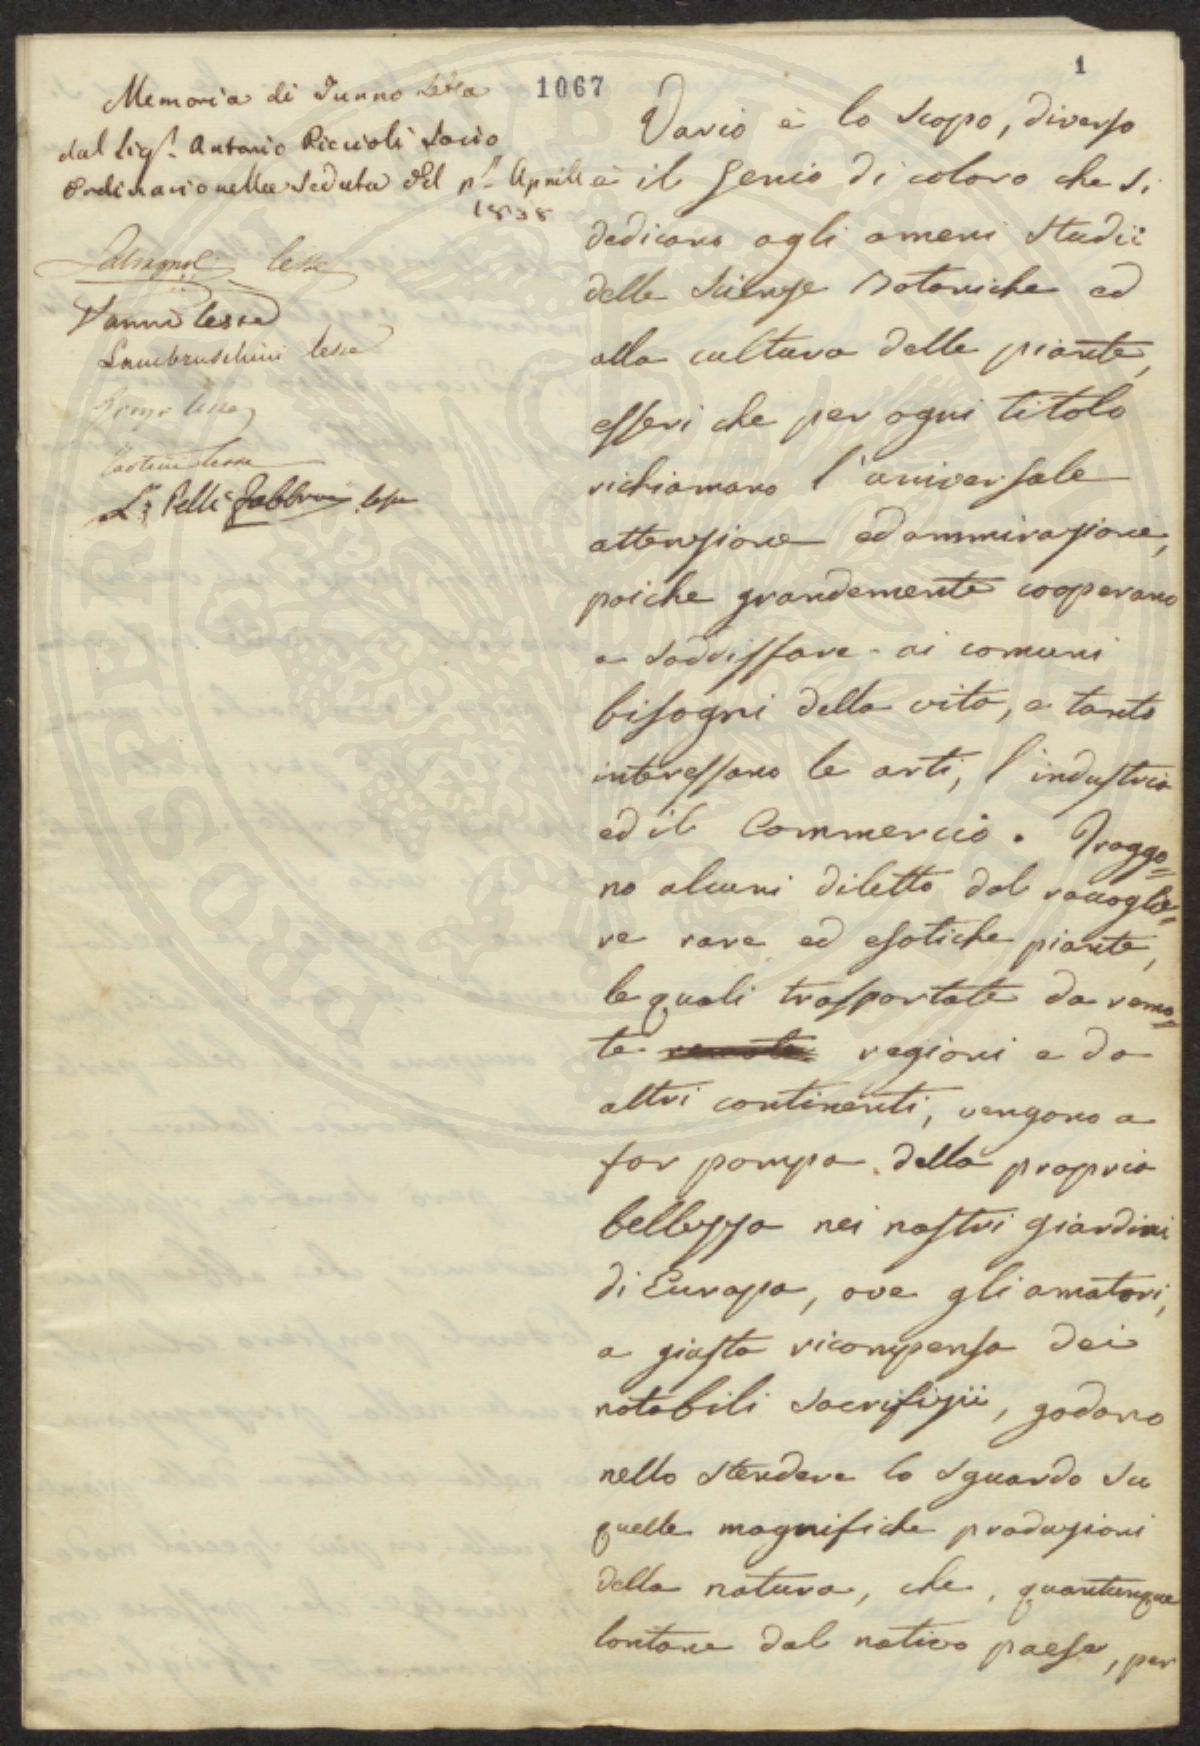 1067
1
Memoria di Turno Letta
dal Sigr. Antonio Piccioli Socio
Ordinario nella Seduta del pr. Aprile
1838
lesse
Vanni lesse
Lambruschini lesse
lesse
lesse
L. Pelli Fabbroni lesse
Vario è lo scopo, diverso
è il genio di coloro che si
dedicano agli ameni studii
delle Scienze Botaniche ed
alla cultura delle piante,
esseri che per ogni titolo
richiamano l'universale
attenzione ed ammirazione,
poiche grandemente cooperano
a soddisfare ai comuni
bisogni della vita, e tanto
interessano le arti, l'industria
ed il Commercio. Traggo=
no alcuni diletto dal raccoglie=
re rare ed esotiche piante,
le quali trasportate da remo=
te regioni e da
altri continenti, vengono a
far pompa della propria
bellezza nei nostri giardini
di Europa, ove gli amatori,
a giusta ricompensa dei
notabili sacrifizii, godono
nello stendere lo sguardo su
quelle magnifiche produzioni
della natura, che, quantunque
lontane dal nativo paese, per